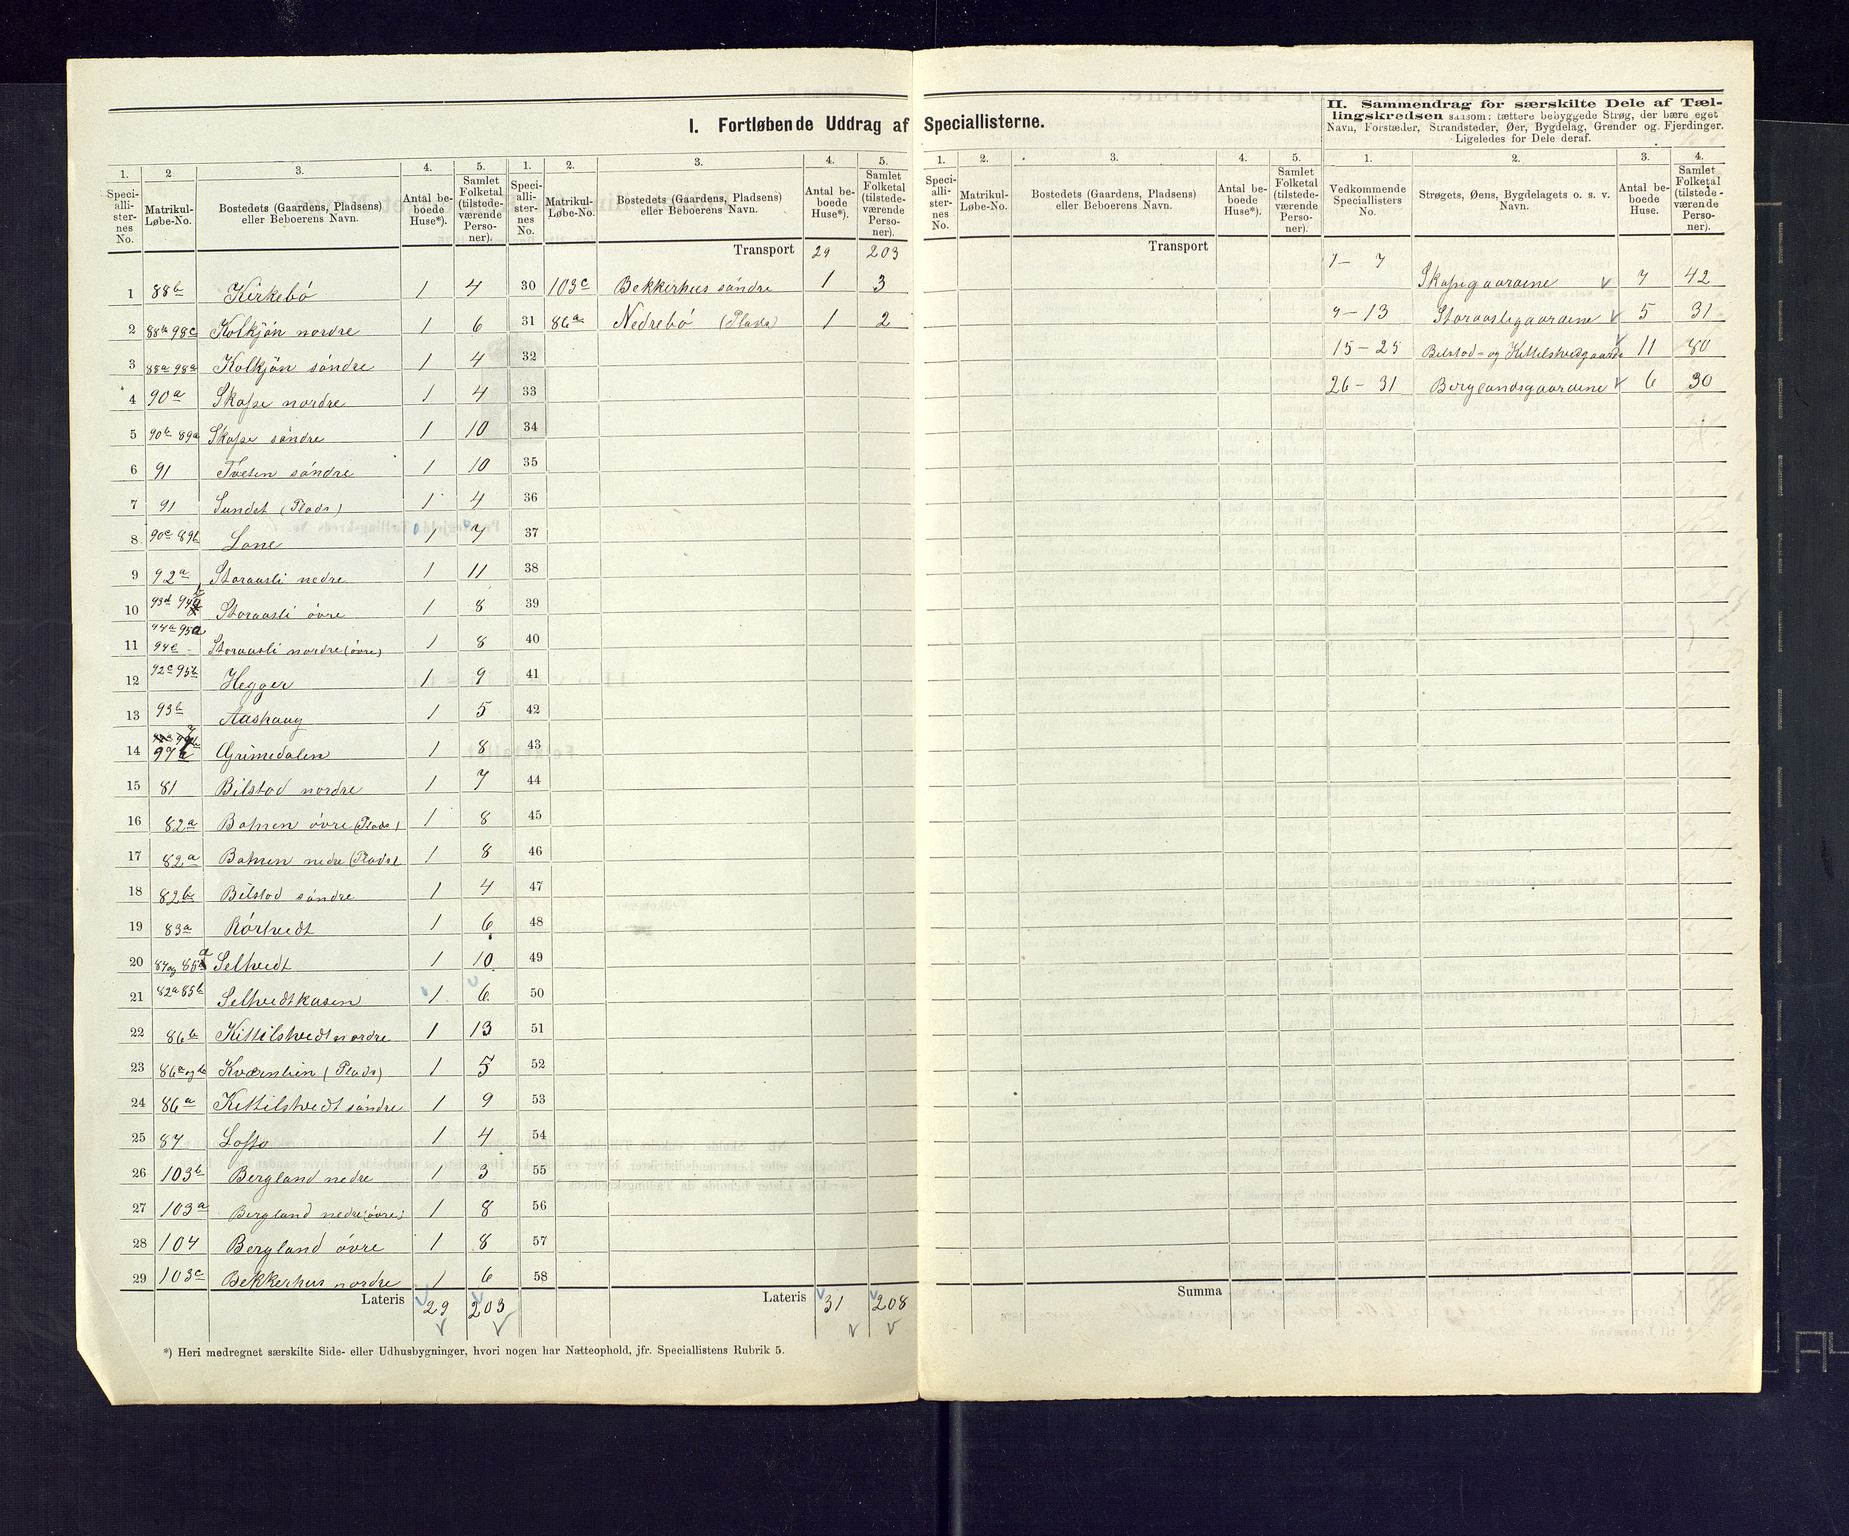 I. Fortløbende Uddrag af Speciallisterne.
II. Sammendrag for særskilte Dele af Tæl-
lingskredsen saasom: tættere bebyggede Strøg, der bære eget
Navn, Forstæder, Strandsteder, Øer, Bygdelag, Grender og Fjerdinger.
Ligeledes for Dele deraf.
1. 2. 3. 4. 5. 1. 2. 3. 4. 5.
Speci-allister-nes No. Matrikul-Løbe-No. Bostedets (Gaardens, Pladsens) eller Beboerens Navn. Antal be-boede Huse*). Samlet Folketal (tilstede-værende Perso-ner).
Speci-allister-nes No. Matrikul-Løbe-No. Bostedets (Gaardens, Pladsens) eller Beboerens Navn. Antal be-boede Huse*). Samlet Folketal (tilstede-værende Perso-ner).
Transport 29 203
1 88b Kirkebö 1 4 30 103c Bekkerhus söndre 1 3
2 88a 98c Kolkjön nordre 1 6 31 86a Nedrebö (Plads) 1 2
3 88a 98a Kolkjön söndre 1 4 32
4 90a Skofse nordre 1 4 33
5 90b 89a Skofse söndre 1 10 34
6 91 Tveten söndre 1 10 35
7 91 Sundet (Plads) 1 4 36
8 90c 89b Lone 1 7 37
9 92a Storaasli nedre 1 11 38
10 93d 94 Storaasli övre 1 8 39
94a 95a
11 94c Storaasli nordre (övre) 1 8 40
12 92c 95b Hegger 1 9 41
13 93b Aashaug 1 5 42
14 97 Grimedalen 1 8 43
15 81 Bilstad nordre 1 7 44
16 82a Bakken övre (Plads) 1 8 45
17 82a Bakken nedre (Plads) 1 8 46
18 82b Bilstad söndre 1 4 47
19 83a Rörtvedt 1 6 48
20 84 og 85a Seltvedt 1 10 49
21 82a 85b Seltvedtkasen 1 6 50
22 86b Kittilstvedt nordre 1 13 51
23 86a og b Kværnlien (Plads) 1 5 52
24 86a Kittilstvedt söndre 1 9 53
25 87 Lofto 1 4 54
26 103b Bergland nedre 1 3 55
27 103a Bergland nedre (övre) 1 8 56
28 104 Bergland övre 1 8 57
29 103c Bekkerhus nordre 1 6 58
Lateris 29 203 Lateris 31 208
*) Heri medregnet særskilte Side- eller Udhusbygninger, hvori nogen har Natteophold, jfr. Speciallistens Rubrik 5.
1. 2. 3. 4. 5. 1. 2. 3. 4.
Speci-allister-nes No. Matrikul-Løbe-No. Bostedets (Gaardens, Pladsens) eller Beboerens Navn. Antal be-boede Huse*). Samlet Folketal (tilstede-værende Perso-ner).
Vedkommende Speciallisters No. Strøgets, Øens, Bygdelagets o. s. v. Navn. Antal be-boede Huse. Samlet Folketal (tilstede-værende Perso-ner).
Transport
1 – 7 Skofsegaardene 7 42
9 – 13 Storaasligaardene 5 31
15 – 25 Bilstad- og Kittilstvedgaarde 11 80
26 – 31 Berglandsgaardene 6 30
Summa